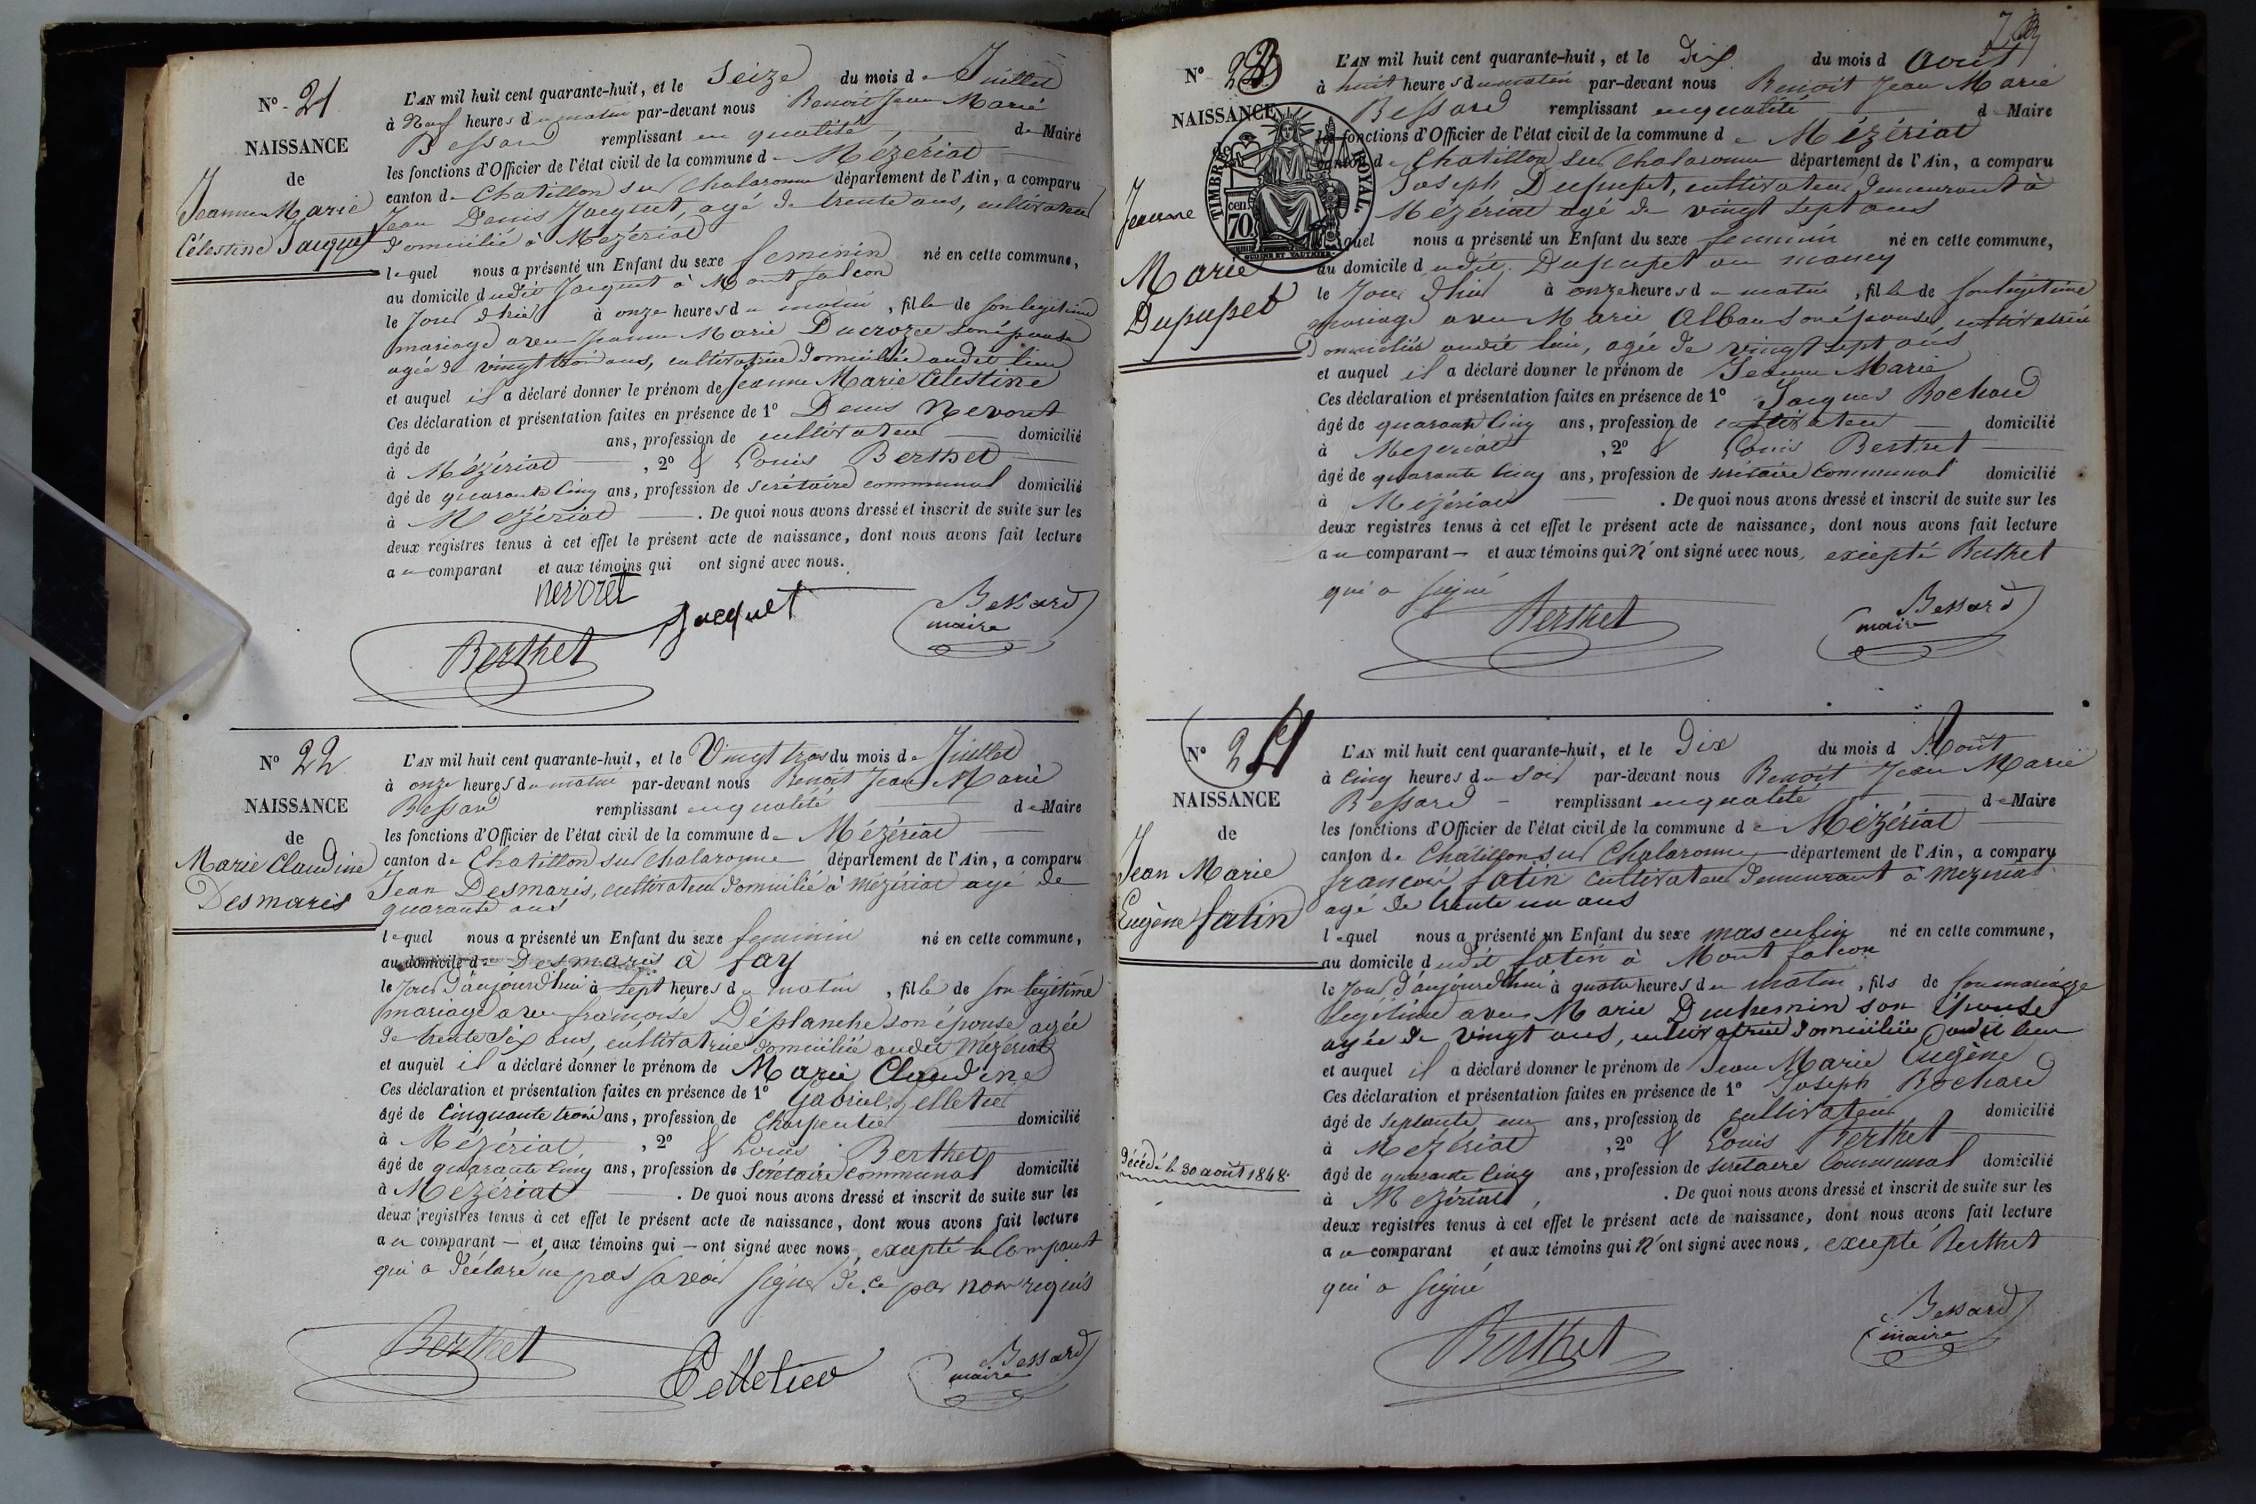 N° 21
NAISSANCE
de
Jeanne Marie
Célestine Jacquet
L'AN mil huit cent quarante-huit, et le Seize du mois de Juillet
à Neuf heures du matin par-devant nous Benoit Jean Marie
Bessard remplissant en qualité de Maire
les fonctions d'Officier de l'état civil de la commune de Mézériat
canton de Chatillon sur Chalaronne département de l'Ain, a comparu
Jean Denis Jacquet, agé de trente ans, cultivateur
domicilié à Mézériat
lequel nous a présenté un Enfant du sexe feminin né en cette commune,
au domicile dudit Jacquet à Montfalcon
le jour d'hier à onze heures du matin, fille de son légitime
mariage avec Jeanne Marie Ducroze son épouse
agée de vingt trois ans, cultivatrice domiciliée audit lieu
et auquel il a déclaré donner le prénom de Jeanne Marie Célestine
Ces déclaration et présentation faites en présence de 1° Denis Nevoret
âgé de ans, profession de cultivateur domicilié
à Mézériat, 2° & Louis Berthet
âgé de quarante cinq ans, profession de secrétaire communal domicilié
à Mézériat. De quoi nous avons dressé et inscrit de suite sur les
deux registres tenus à cet effet le présent acte de naissance, dont nous avons fait lecture
au comparant et aux témoins qui ont signé avec nous.
nevoret
Jacquet
Bessard
maire
Berthet
N° 22
NAISSANCE
de
Marie Claudine
Desmaris
L'AN mil huit cent quarante-huit, et le Vingt trois du mois de Juillet
à onze heures du matin par-devant nous Benoit Jean Marie
Bessard remplissant en qualité de Maire
les fonctions d'Officier de l'état civil de la commune de Mézériat
canton de Chatillon sur Chalaronne département de l'Ain, a comparu
Jean Desmaris, cultivateur domicilié à Mézériat agé de
quarante ans
lequel nous a présenté un Enfant du sexe feminin né en cette commune,
au domicile de Desmaris à fay
le jour d'aujourd'hui à sept heures du matin, fille de son légitime
mariage avec françoise Déplanche son épouse agée
de trente six ans, cultivatrice domiciliée audit Mézériat
et auquel il a déclaré donner le prénom de Marie Claudine
Ces déclaration et présentation faites en présence de 1° Gabriel Pelletier
âgé de Cinquante trois ans, profession de Charpentier domicilié
à Mézériat, 2° & Louis Berthet
âgé de quarante cinq ans, profession de Secrétaire communal domicilié
à Mézériat. De quoi nous avons dressé et inscrit de suite sur les
deux registres tenus à cet effet le présent acte de naissance, dont nous avons fait lecture
au comparant et aux témoins qui ont signé avec nous excepté le Comparant
qui a déclaré ne pas savoir signer de ce par nous requis
Berthet
Pelletier
Bessard
maire
N° 23
NAISSANCE
de
TIMBRE ROYAL.
70 cen.
Jeanne
Marie
Dupupet
L'AN mil huit cent quarante-huit, et le Dix du mois d Août
à huit heures du matin par-devant nous Benoit Jean Marie
Bessard remplissant en qualité de Maire
les fonctions d'Officier de l'état civil de la commune de Mézériat
canton de Chatillon sur Chalaronne département de l'Ain, a comparu
Joseph Dupupet, cultivateur demeurant à
Mézériat agé de vingt sept ans
lequel nous a présenté un Enfant du sexe feminin né en cette commune,
au domicile dudit Dupupet au
le jour d'hier à onze heures du matin, fille de son légitime
mariage avec Marie Alban son épouse, cultivatrice
domiciliée audit lieu, agée de vingt sept ans
et auquel il a déclaré donner le prénom de Jeanne Marie
Ces déclaration et présentation faites en présence de 1° Jacques Rochard
âgé de quarante cinq ans, profession de cultivateur domicilié
à Mézériat, 2° & Louis Berthet
âgé de quarante cinq ans, profession de secrétaire communal domicilié
à Mézériat. De quoi nous avons dressé et inscrit de suite sur les
deux registres tenus à cet effet le présent acte de naissance, dont nous avons fait lecture
au comparant et aux témoins qui n'ont signé avec nous, excepté Berthet
qui a signé
Berthet
Bessard
maire
N° 24
NAISSANCE
de
Jean Marie
Eugène fatin
Décédé le 30 août 1848.
L'AN mil huit cent quarante-huit, et le Dix du mois d Août
à Cinq heures du soir par-devant nous Benoit Jean Marie
Bessard remplissant en qualité de Maire
les fonctions d'Officier de l'état civil de la commune de Mézériat
canton de Châtillon sur Chalaronne département de l'Ain, a comparu
françois fatin cultivateur demeurant à Mézériat
agé de trente un ans
lequel nous a présenté un Enfant du sexe masculin né en cette commune,
au domicile dudit fatin à Mont falcon
le jour d'aujourd'hui à quatre heures du matin, fils de son mariage
légitime avec Marie Duchemin son épouse
agée de vingt ans, cultivatrice domiciliée audit lieu
et auquel il a déclaré donner le prénom de Jean Marie Eugène
Ces déclaration et présentation faites en présence de 1° Joseph Rochard
âgé de septante un ans, profession de cultivateur domicilié
à Mézériat, 2° & Louis Berthet
âgé de quarante cinq ans, profession de secrétaire Communal domicilié
à Mézériat. De quoi nous avons dressé et inscrit de suite sur les
deux registres tenus à cet effet le présent acte de naissance, dont nous avons fait lecture
au comparant et aux témoins qui n'ont signé avec nous, excepté Berthet
qui a signé
Berthet
Bessard
maire